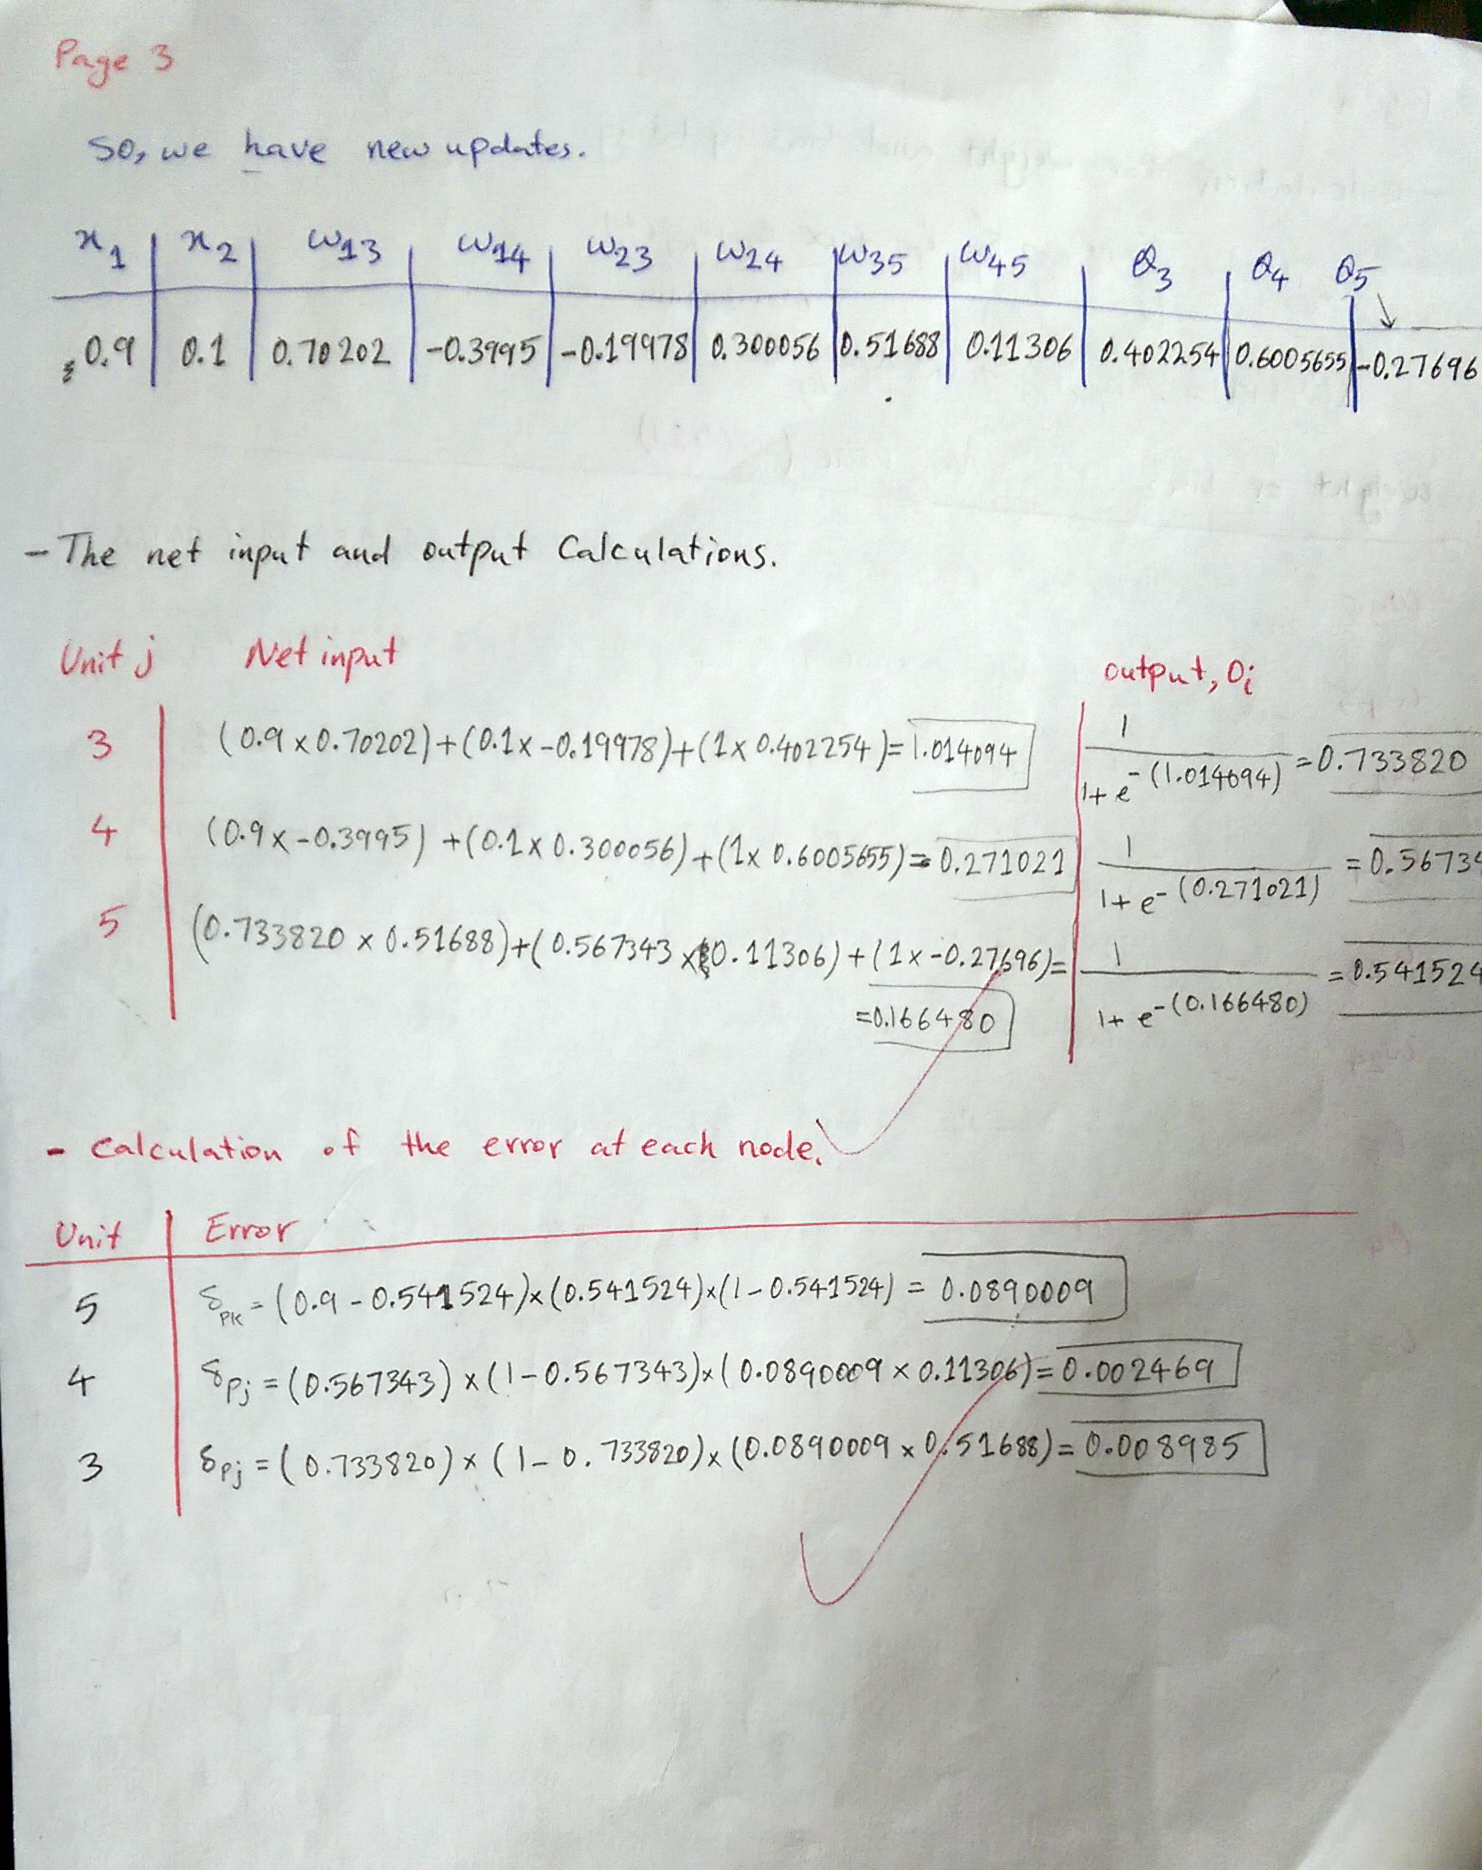 Page 3
So, we have new updates.
x1 x2 w13 w14 w23 w24 w35 w45 θ3 θ4 θ5
0.9 0.1 0.70202 -0.3995 -0.19978 0.300056 0.51688 0.11306 0.402254 0.6005655 -0.27696
- The net input and output Calculations.
Unit j Net input output, Oi
3 (0.9 x 0.70202)+(0.1x -0.19978)+(1x 0.402254)= 1.014094 1/1+e^-(1.014094) =0.733820
4 (0.9x -0.3995) +(0.1x 0.300056)+(1x 0.6005655)= 0.271021 1/1+e^-(0.271021) =0.56734
5 (0.733820 x 0.51688)+(0.567343 x 0.11306)+(1x -0.27696)= 1/1+e^-(0.166480) =0.541524
=0.166480
- Calculation of the error at each node.
Unit Error
5 δpk = (0.9 - 0.541524)x(0.541524)x(1-0.541524) = 0.0890009
4 δpj = (0.567343) x (1-0.567343)x(0.0890009 x 0.11306)= 0.002469
3 δpj = (0.733820) x (1-0.733820)x(0.0890009 x 0.51688)= 0.008985